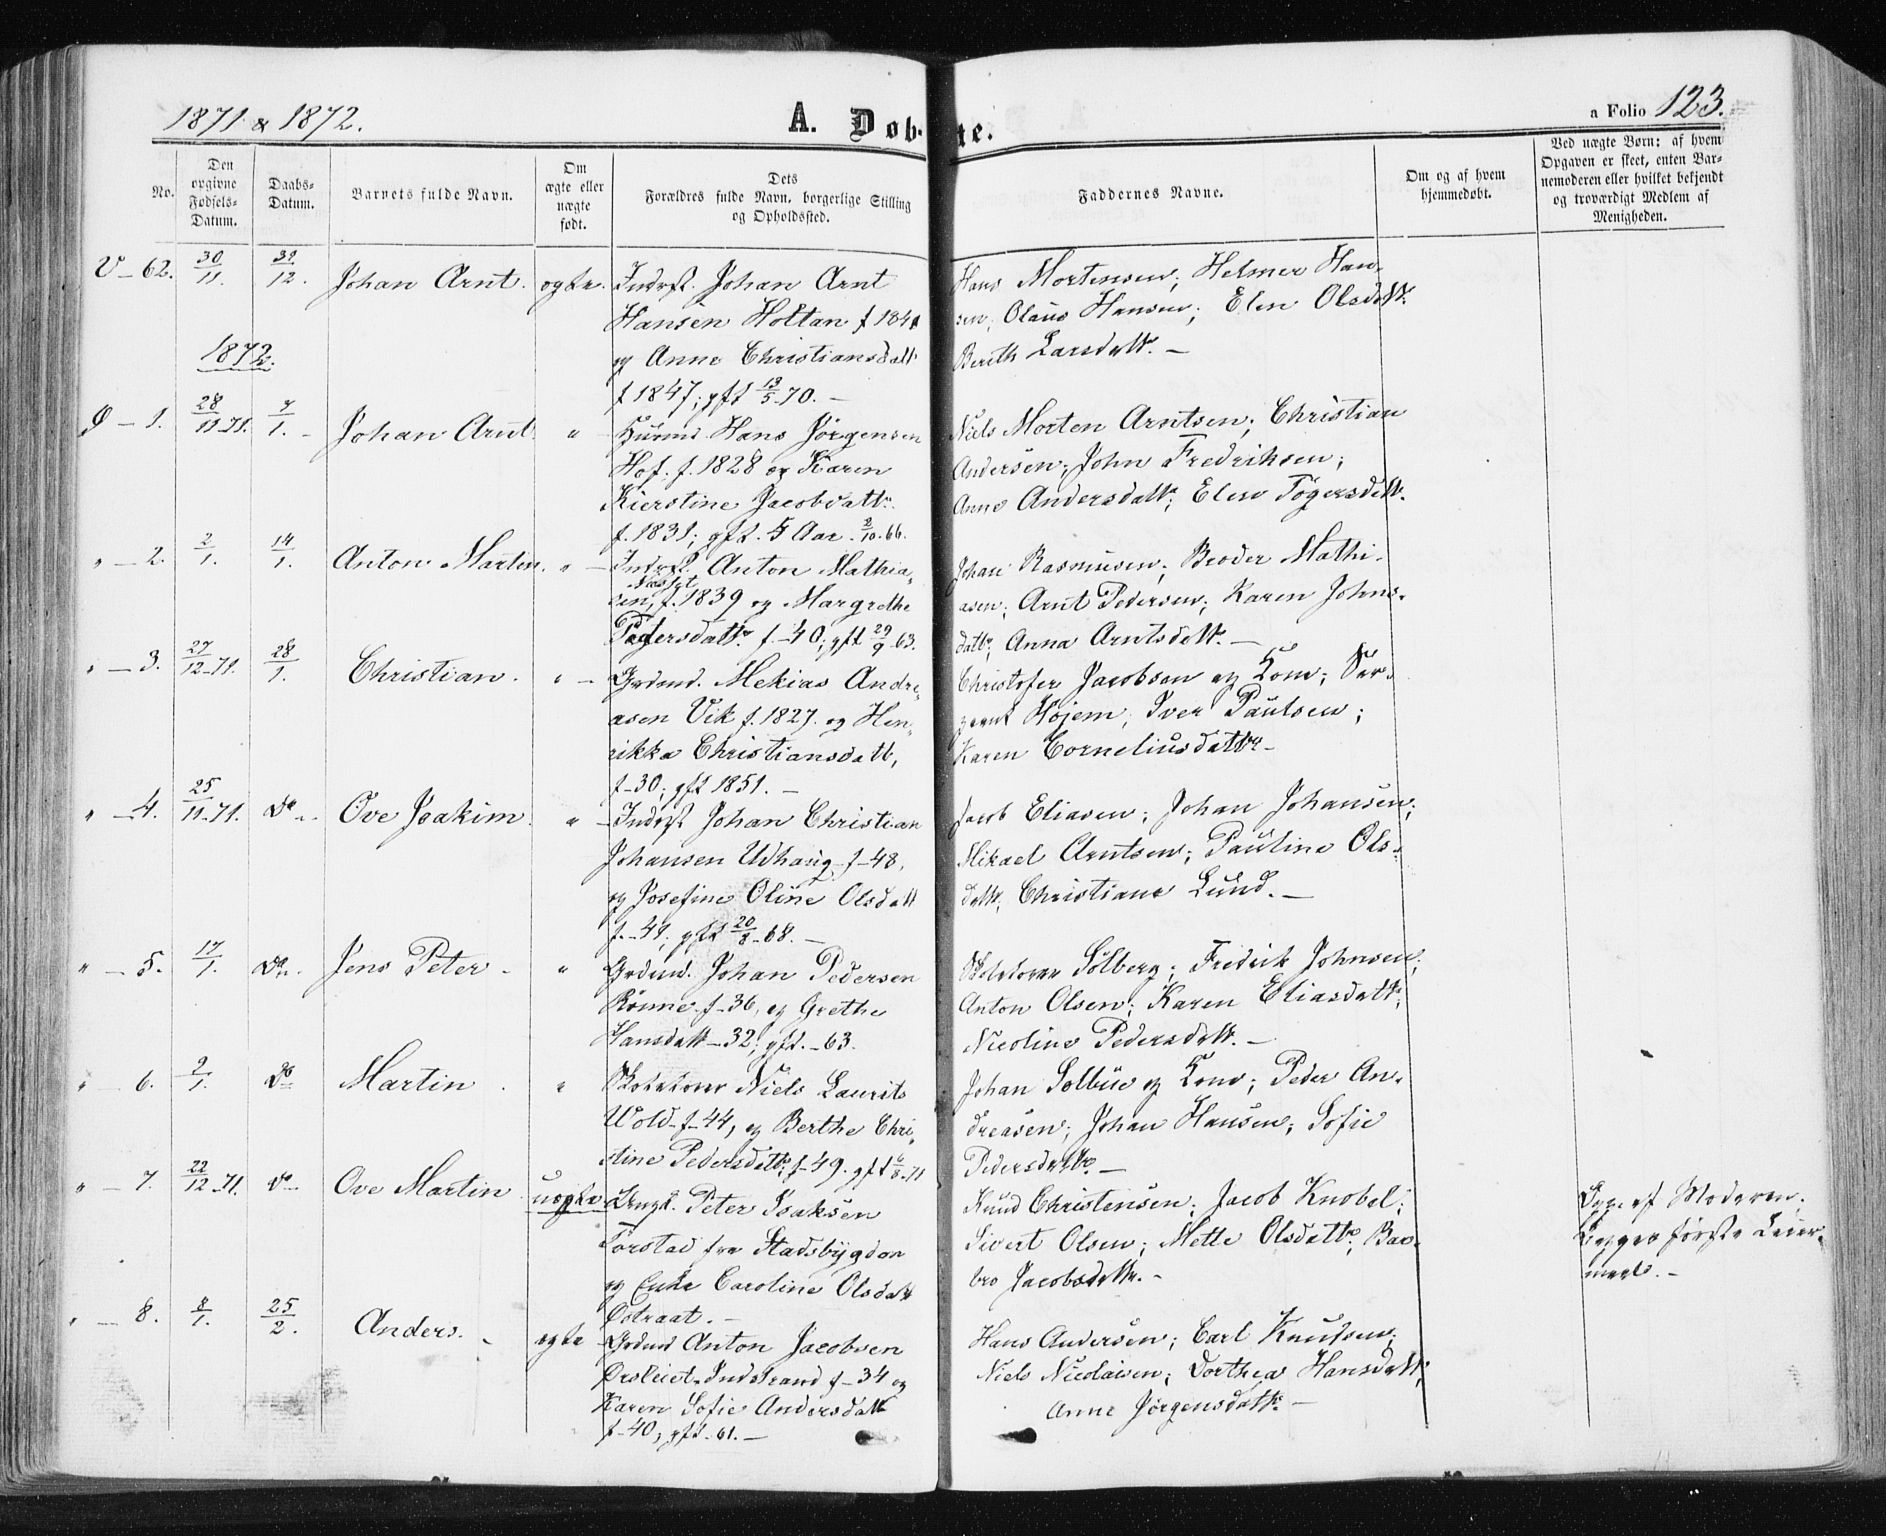 1871 & 1872.
A. Døb- te.
a Folio 123.
No.
Den opgivne Fødsels-Datum.
Daabs-Datum.
Barnets fulde Navn.
Om ægte eller uægte født.
Dets Forældres fulde Navn, borgerlige Stilling og Opholdssted.
Faddernes Navne.
Om og af hvem hjemmedøbt.
Ved uægte Børn: af hvem Opgaven er skeet, enten Barnemoderen eller hvilket bekjendt og troværdigt Medlem af Menigheden.
V - 62. 30/11. 12. Johan Arnt. ægte. Indrst. Johan Arnt
Hansen Holtan f 184
og Anne Christiansdatt
f 1847; gft 13/5-70. -
Hans Mortensen; Helmer Han-
sen; Olaus Hansen; Elen Olsdatt.
Bereth Larsdatt. -
1872.
Ø - 1. 28/11-71. 7/1. - Johan Arnt. " - Huusmd. Hans Jørgensen
Hof. f. 1828 og Karen
Kierstine Jacobsdatt.
f. 1831; gft. 5 Aar. 2/10-66.
Niels Morten Arntsen; Christian
Andersen; John Fredriksen;
Anne Andersdatt; Elen Tøgersdatt.
" - 2. 2/1. 14/1. Anton Martin. " - Indrst. Anton Mathia-
sen, f. 1839 og Margrethe
Pedersdatt. f. -40; gft 29/9-63.
Johan Rasmusen; Broder Mathi-
asen; Arnt Pedersen; Karen Johns-
datt; Anna Arntsdatt. -
" - 3. 27/12-71. 28/1. Christian. " - Grdmd. Mekias Andre-
asen Vik f. 1827. og Hen-
rikka Christiansdatt,
f-30; gft 1851. -
Christofer Jacobsen og Kone; Ser-
geant Højem; Iver Paulsen;
Karen Corneliusdatt. -
" - 4. 25/11-71. Do -. Ove Joakim. " - Indrst Johan Christian
Johansen Udhaug f-48,
og Josefine Oline Olsdatt
f.-47; gft 20/8-68. -
Jacob Eliasen; Johan Johansen;
Mikael Arntsen; Pauline Ols-
datt; Christiane Lund. -
" - 5. 17/1. Do. Jens Peter - " Grdmd. Johan Pedersen
Rønne f-36, og Grethe
Hansdatt -32; gft. -63.
Skolelærer Solberg; Fredrik Johnsen;
Anton Olsen; Karen Eliasdatt;
Nicoline Pedersdatt. -
" - 6. 9/1. Do Martin. " Skolelærer Niels Laurits
Wold f-44, og Berthe Chri-
stine Pedersdatt; f-49. gft 6/8-71
Johan Solbue og Kone; Peder An-
dreasen; Johan Hansen; Sofie
Pedersdatt. -
" - 7. 22/12-71. Do - Ove Martin uægte. Ungk. Peter Isaksen
Forstad fra Stadsbygden
og Enke Caroline Olsdatt
Østraat. -
Knud Christensen; Jacob Knobel;
Sivert Olsen; Mette Olsdatt; Bar-
bro Jacobsdatt. -
Opg. af Moderen.
Begges første Leier-
maal. -
" - 8. 8/1. 25/2. Anders. - ægte - Grdmd Anton Jacobsen
Ørsleiet-Indstrand f-34 og
Karen Sofie Andersdatt
f-40; gft-61. -
Hans Andersen; Carl Knudsen;
Niels Nicolaisen; Dorthea Hansdatt;
Anne Jørgensdatt. -